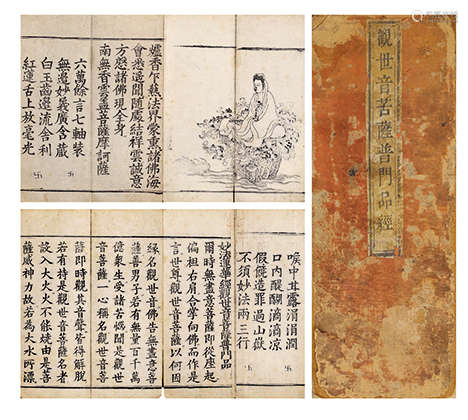 觀世音菩薩普門品經
爐香乍爇法界蒙熏諸佛海
會悉遙聞隨處結祥雲誠意
方慇諸佛現全身
南無香雲蓋菩薩摩訶薩
六萬餘言七軸裝
無邊妙義廣含藏
白玉齒邊流舍利
紅蓮舌上放毫光
喉中甘露涓涓潤
口內醍醐滴滴涼
假饒造罪過山嶽
不須妙法兩三行
妙法蓮華經觀世音菩薩普門品
爾時無盡意菩薩即從座起
偏袒右肩合掌向佛而作是
言世尊觀世音菩薩以何因
緣名觀世音佛告無盡意菩
薩善男子若有無量百千萬
億眾生受諸苦惱聞是觀世
音菩薩一心稱名觀世音菩
薩即時觀其音聲皆得解脫
若有持是觀世音菩薩名者
設入大火火不能燒由是菩
薩威神力故若為大水所漂